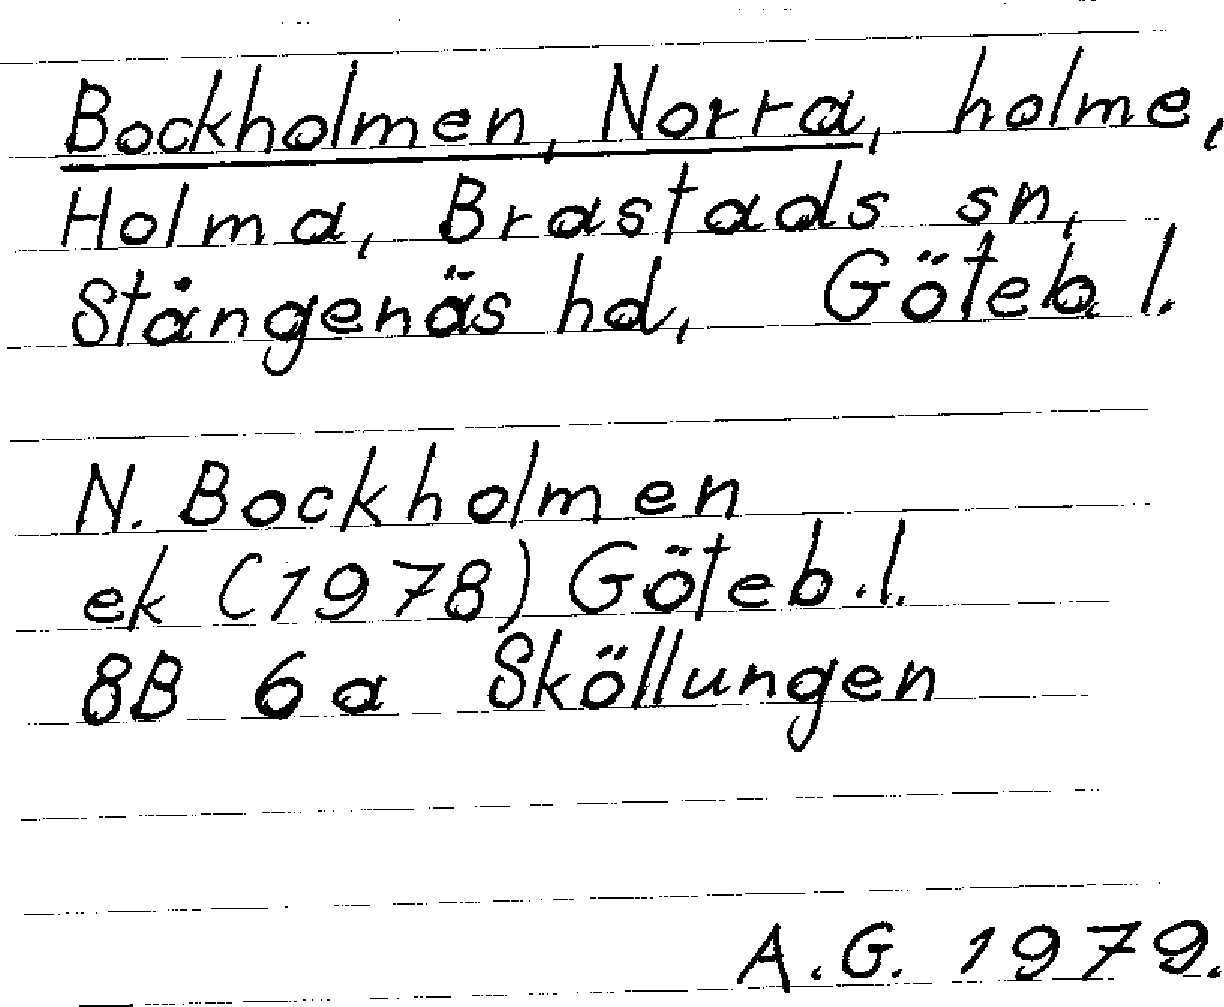 Bockholmen, Norra, holme,
Holma, Brastads sn,
Stångenäs hd, Göteb. l.
N. Bockholmen
ek (1978) Göteb. l.
8B 6a Sköllungen
A.G. 1979.